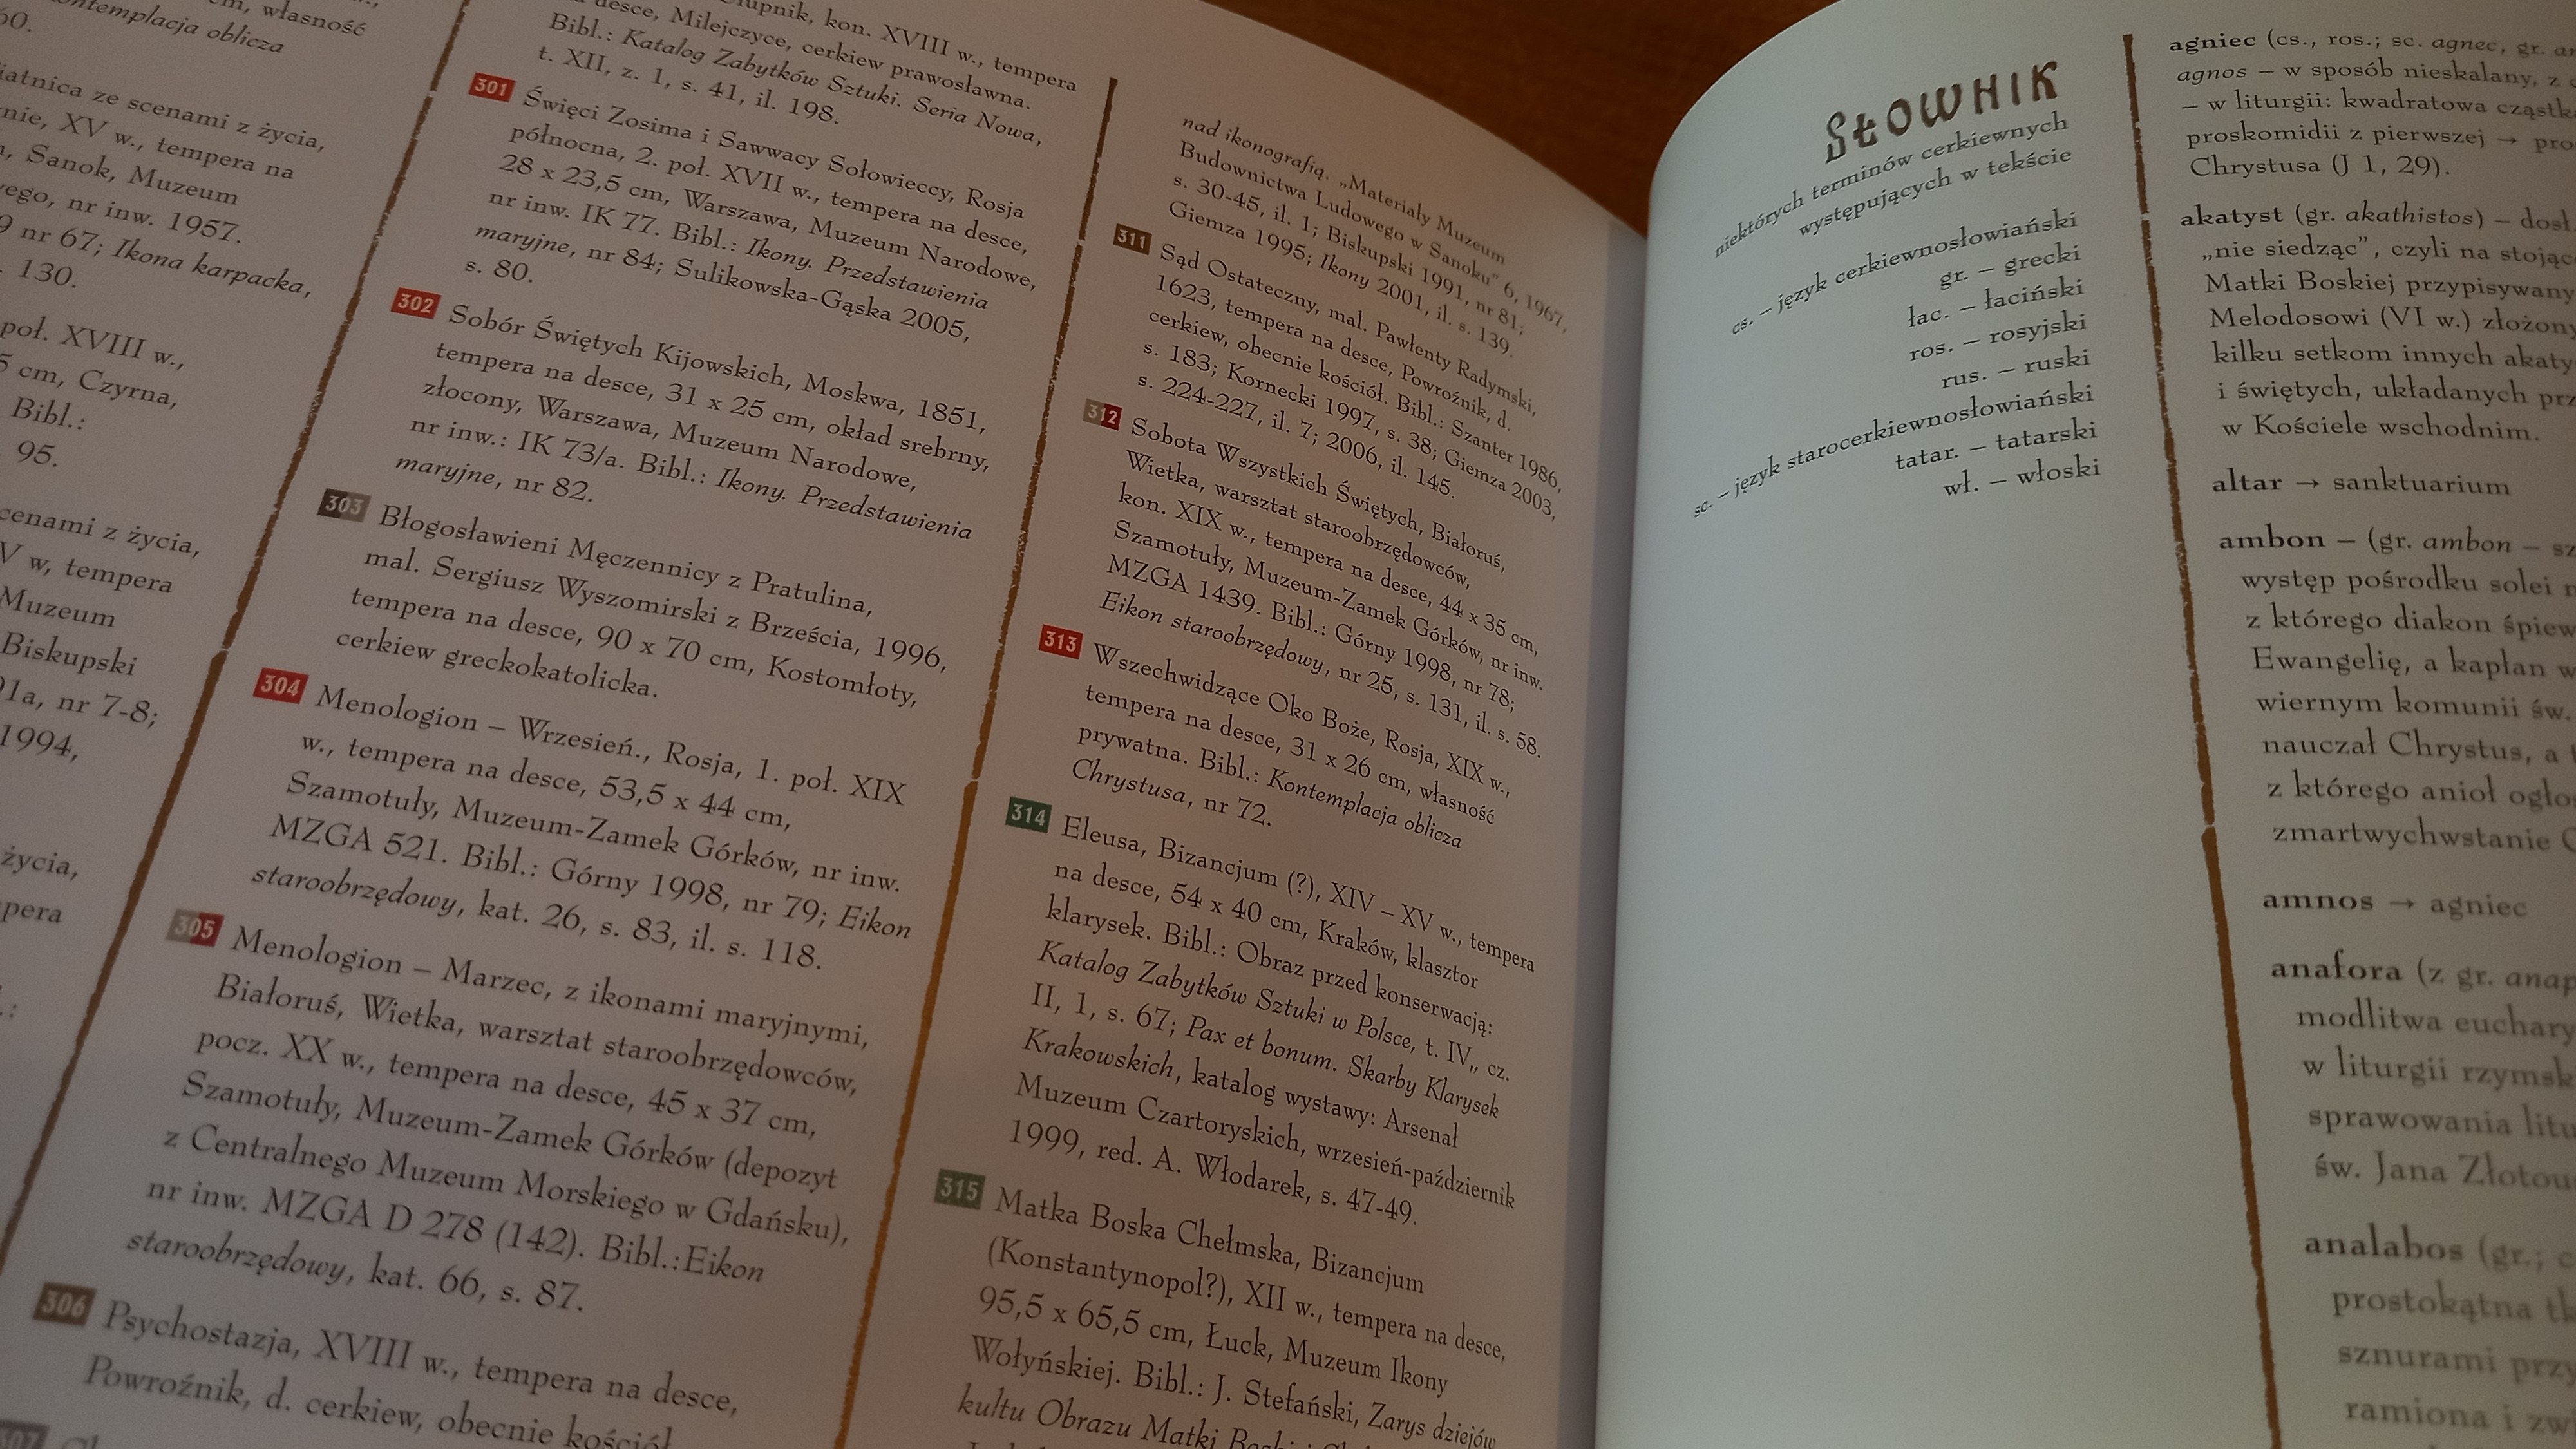 własność
kontemplacja oblicza
60.
ze scenami z życia,
XV w., tempera na
Sanok, Muzeum
nr inw. 1957.
nr 67; Ikona karpacka,
130.
poł. XVIII w.,
5 cm, Czyrna,
Bibl.:
95.
scenami z życia,
w, tempera
Muzeum
Biskupski
nr 7-8;
1994,
życia,
kon. XVIII w., tempera
desce, Milejczyce, cerkiew prawosławna.
Bibl.: Katalog Zabytków Sztuki. Seria Nowa,
t. XII, z. 1, s. 41, il. 198.
301 Święci Zosima i Sawwacy Sołowieccy, Rosja
północna, 2. poł. XVII w., tempera na desce,
28 x 23,5 cm, Warszawa, Muzeum Narodowe,
nr inw. IK 77. Bibl.: Ikony. Przedstawienia
maryjne, nr 84; Sulikowska-Gąska 2005,
s. 80.
302 Sobór Świętych Kijowskich, Moskwa, 1851,
tempera na desce, 31 x 25 cm, okład srebrny,
złocony, Warszawa, Muzeum Narodowe,
nr inw.: IK 73/a. Bibl.: Ikony. Przedstawienia
maryjne, nr 82.
303 Błogosławieni Męczennicy z Pratulina,
mal. Sergiusz Wyszomirski z Brześcia, 1996,
tempera na desce, 90 x 70 cm, Kostomłoty,
cerkiew greckokatolicka.
304 Menologion – Wrzesień., Rosja, 1. poł. XIX
w., tempera na desce, 53,5 x 44 cm,
Szamotuły, Muzeum-Zamek Górków, nr inw.
MZGA 521. Bibl.: Górny 1998, nr 79; Eikon
staroobrzędowy, kat. 26, s. 83, il. s. 118.
305 Menologion – Marzec, z ikonami maryjnymi,
Białoruś, Wietka, warsztat staroobrzędowców,
pocz. XX w., tempera na desce, 45 x 37 cm,
Szamotuły, Muzeum-Zamek Górków (depozyt
z Centralnego Muzeum Morskiego w Gdańsku),
nr inw. MZGA D 278 (142). Bibl.:Eikon
staroobrzędowy, kat. 66, s. 87.
306 Psychostazja, XVIII w., tempera na desce,
Powroźnik, d. cerkiew, obecnie kościół
307
nad ikonografią. „Materiały Muzeum
Budownictwa Ludowego w Sanoku" 6, 1967,
s. 30-45, il. 1; Biskupski 1991, nr 81;
Giemza 1995; Ikony 2001, il. s. 139.
311 Sąd Ostateczny, mal. Pawłenty Radymski,
1623, tempera na desce, Powroźnik, d.
cerkiew, obecnie kościół. Bibl.: Szanter 1986,
s. 183; Kornecki 1997, s. 38; Giemza 2003,
s. 224-227, il. 7; 2006, il. 145.
312 Sobota Wszystkich Świętych, Białoruś,
Wietka, warsztat staroobrzędowców,
kon. XIX w., tempera na desce, 44 x 35 cm,
Szamotuły, Muzeum-Zamek Górków, nr inw.
MZGA 1439. Bibl.: Górny 1998, nr 78;
Eikon staroobrzędowy, nr 25, s. 131, il. s. 58.
313 Wszechwidzące Oko Boże, Rosja, XIX w.,
tempera na desce, 31 x 26 cm, własność
prywatna. Bibl.: Kontemplacja oblicza
Chrystusa, nr 72.
314 Eleusa, Bizancjum (?), XIV – XV w., tempera
na desce, 54 x 40 cm, Kraków, klasztor
klarysek. Bibl.: Obraz przed konserwacją:
Katalog Zabytków Sztuki w Polsce, t. IV,, cz.
II, 1, s. 67; Pax et bonum. Skarby Klarysek
Krakowskich, katalog wystawy: Arsenał
Muzeum Czartoryskich, wrzesień-październik
1999, red. A. Włodarek, s. 47-49.
315 Matka Boska Chełmska, Bizancjum
(Konstantynopol?), XII w., tempera na desce,
95,5 x 65,5 cm, Łuck, Muzeum Ikony
Wołyńskiej. Bibl.: J. Stefański, Zarys dziejów
kultu Obrazu Matki
SŁOWNIK
niektórych terminów cerkiewnych
występujących w tekście
cs. – język cerkiewnosłowiański
gr. – grecki
łac. – łaciński
ros. – rosyjski
rus. – ruski
sc. – język starocerkiewnosłowiański
tatar. – tatarski
wł. – włoski
agniec (cs., ros.; sc. agnec, gr.
agnos – w sposób nieskalany, z
– w liturgii: kwadratowa cząstka
proskomidii z pierwszej →
Chrystusa (J 1, 29).
akatyst (gr. akathistos) – dosł.
„nie siedząc", czyli na
Matki Boskiej
Melodosowi (VI w.)
kilku setkom innych
i świętych, układanych
w Kościele wschodnim.
altar → sanktuarium
ambon – (gr. ambon –
występ pośrodku solei
z którego diakon
Ewangelię, a kapłan
wiernym komunii św.
nauczał Chrystus, a
z którego anioł
zmartwychwstanie
amnos → agniec
anafora (z gr.
modlitwa
w liturgii
sprawowania
św. Jana
analabos (gr.;
prostokątna
sznurami
ramiona i